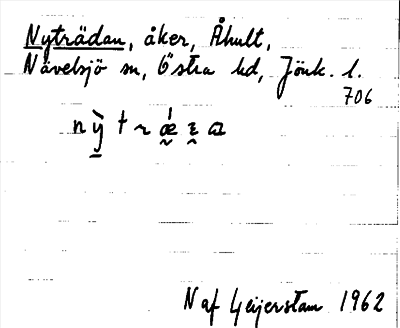 Nyträdan, åker, Åhult,
Nävelsjö sn, Östra hd, Jönk. l.
706
N af Geijerstam 1962